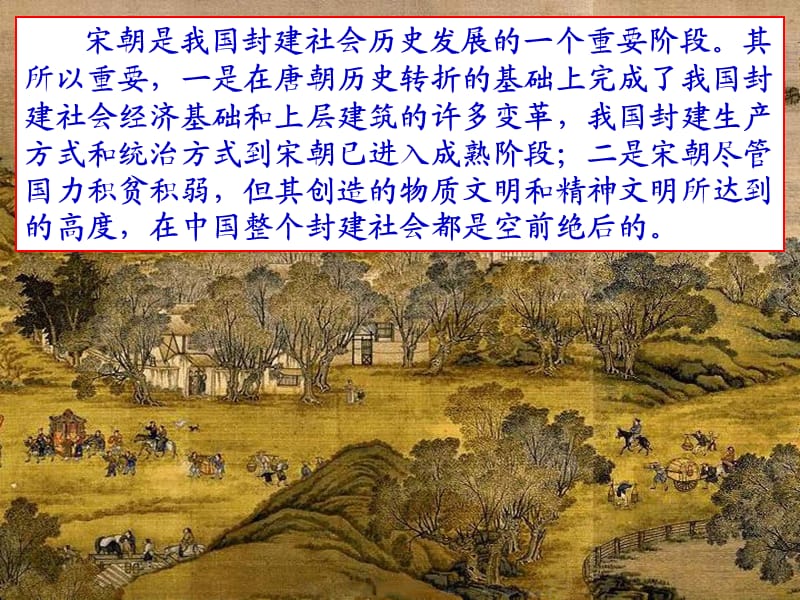 宋朝是我国封建社会历史发展的一个重要阶段。其
所以重要，一是在唐朝历史转折的基础上完成了我国封
建社会经济基础和上层建筑的许多变革，我国封建生产
方式和统治方式到宋朝已进入成熟阶段；二是宋朝尽管
国力积贫积弱，但其创造的物质文明和精神文明所达到
的高度，在中国整个封建社会都是空前绝后的。